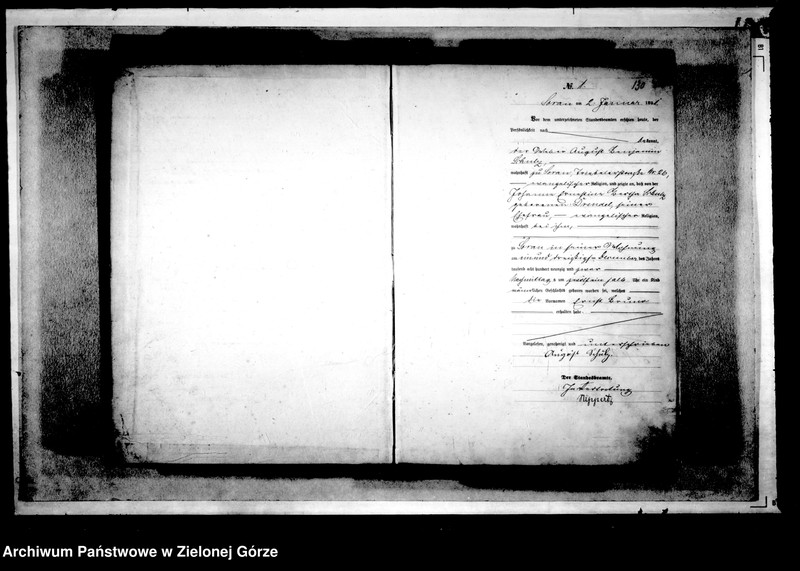 № 1
130
Sorau am 2 Januar 18
Vor dem unterzeichneten Standesbeamten erschien heute, der
Persönlichkeit nach
bekannt,
der Weber August Benjamin
Schulz,
wohnhaft zu Sorau,
evangelischer Religion, und zeigte an, daß von der
Johanne Ernestine Bertha Schulz
geborenen seiner
Ehefrau, evangelischer Religion,
wohnhaft bei ihm,
zu Sorau in seiner Wohnung
am einunddreißigsten Dezember des Jahres
tausend acht hundert neunzig und zwar
Nachmittags um halb Uhr ein Kind
männlichen Geschlechts geboren worden sei, welches
die Vornamen Ernst Bruno
erhalten habe.
Vorgelesen, genehmigt und unterschrieben
August Schulz.
Der Standesbeamte.
In Vertretung
Archiwum Państwowe w Zielonej Górze